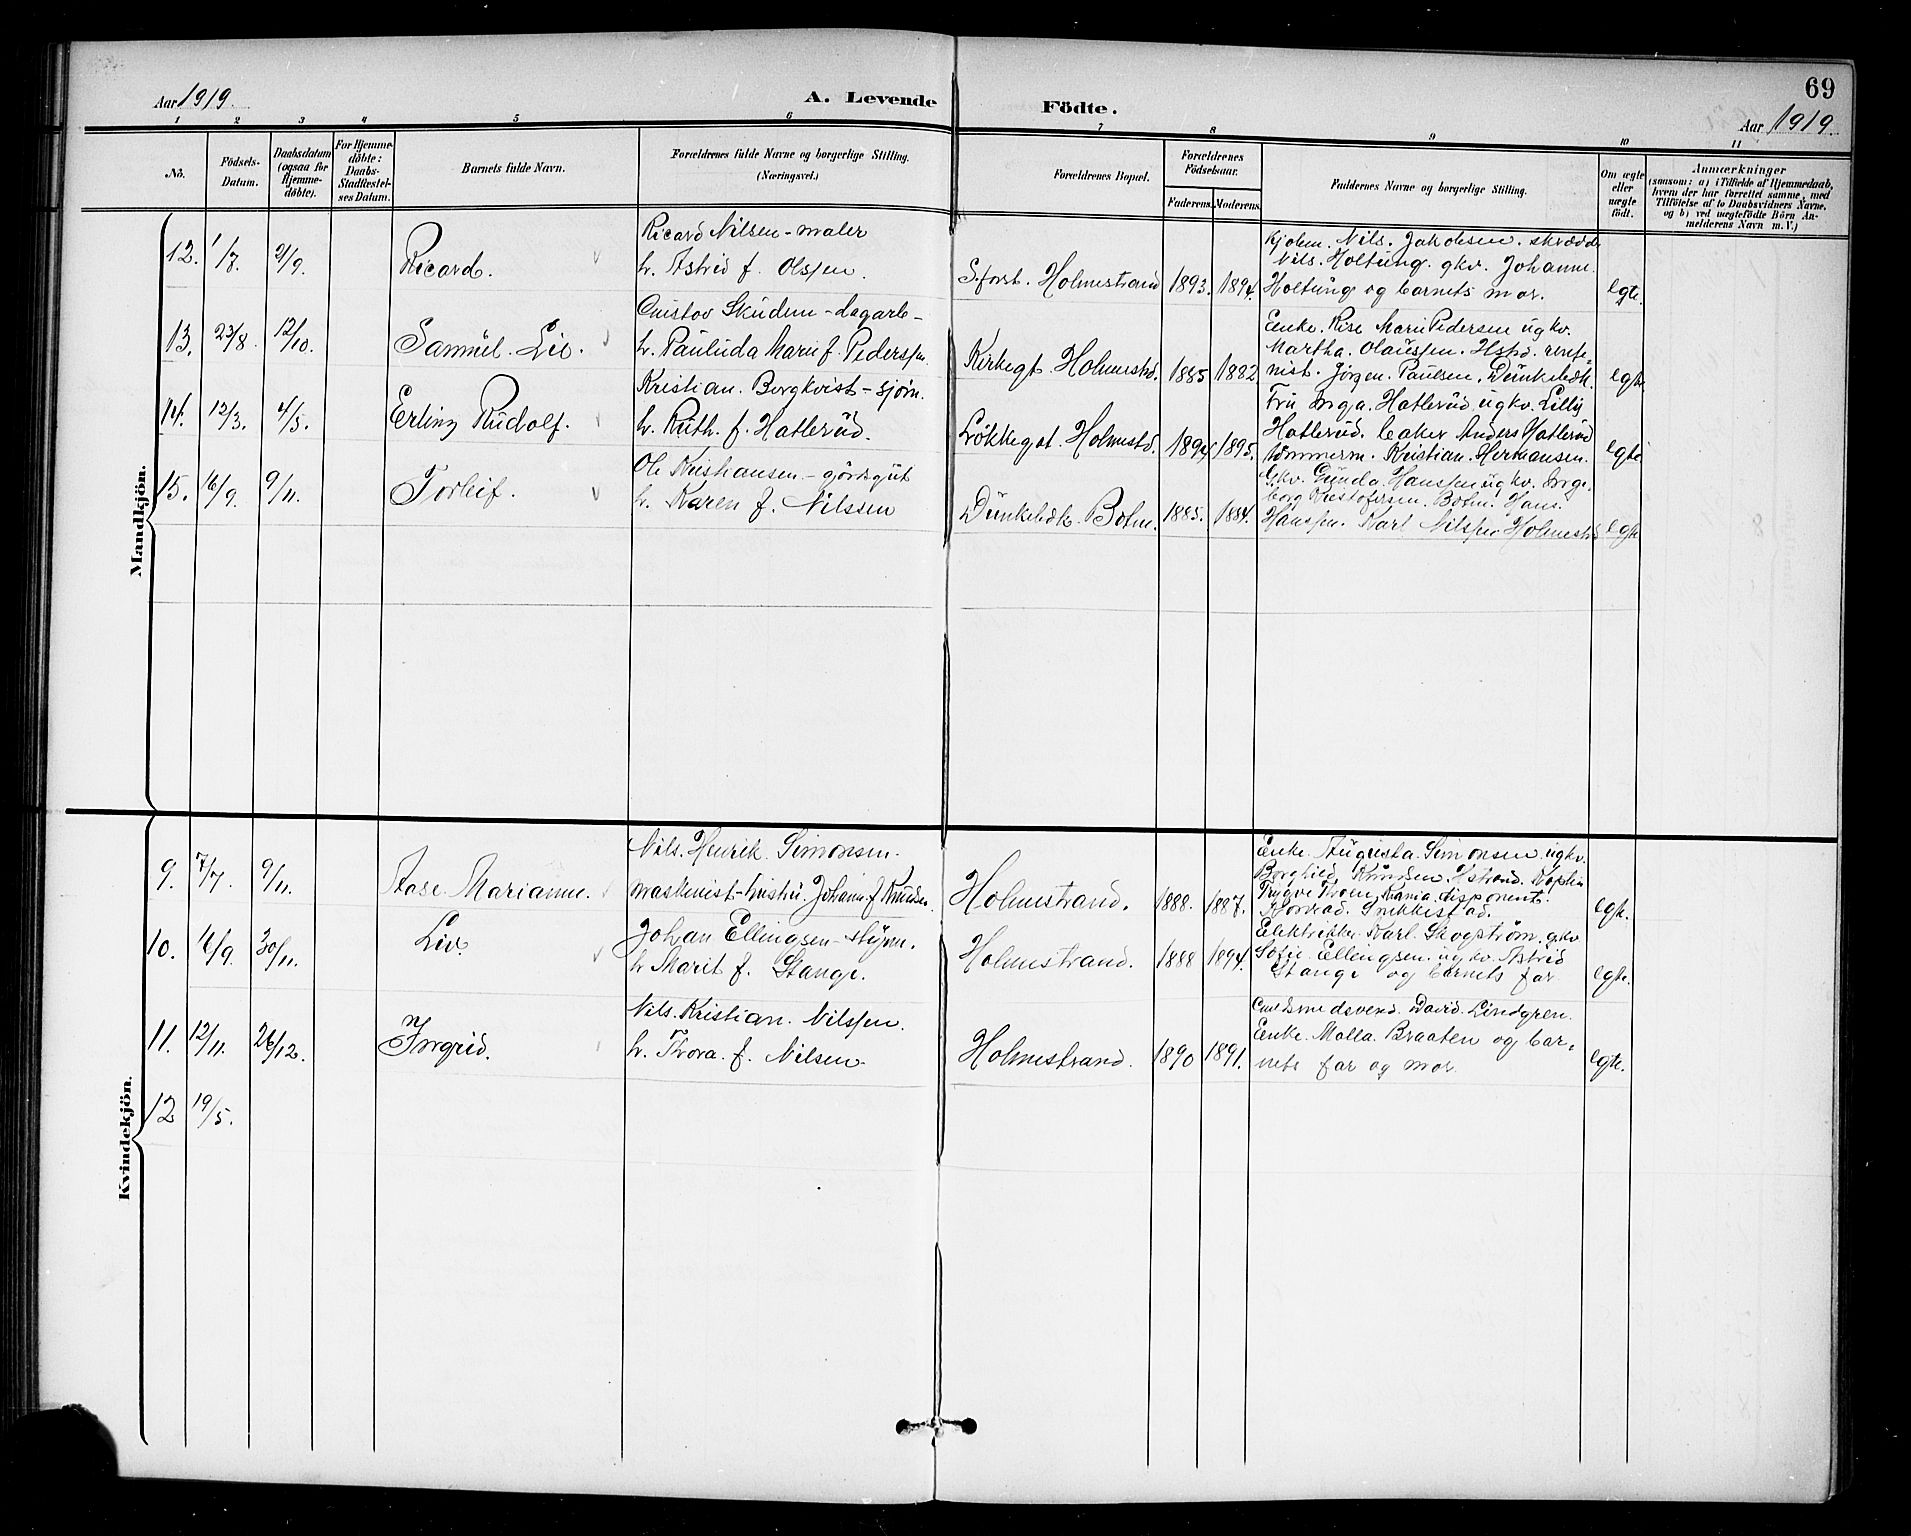 69
Aar 1919.
A. Levende Födte.
Aar 1919
1 2 3 4 5 6 7 8 9 10 11
No.
Födsels-Datum.
Daabsdatum (ogsaa for Hjemme-döbte).
For Hjemme-döbte: Daabs-Stadfæstel-ses Datum.
Barnets fulde Navn.
Forældrenes fulde Navne og borgerlige Stilling. (Næringsvei.)
Forældrenes Bopæl.
Forældrenes Födselsaar.
Faderens. Moderens.
Faddernes Navne og borgerlige Stilling.
Om ægte eller uægte födt.
Anmærkninger
(saasom: a) i Tilfælde af Hjemmedaab,
hvem der har forrettet samme, med
Tilföielse af to Daabsvidners Navne,
og b) ved uægtefödte Börn An-
melderens Navn m. V.)
Mandkjön.
12. 1/7. 21/9. Ricard.
Ricard Nilsen - maler
h. Astrid f. Olssen.
S.forst. Holmestrand 1893. 1894.
Kjøbm. Nils. Jakobsen. skrædd
Nils. Holtung. gkv. Johanne.
Holtung og barnets mor. egte.
13. 23/8. 12/10. Samuel. Liv.
Gustov Skudem - dagarb -
h. Pauluda Marie f. Pederssen.
Kirkegt. Holmestrd. 1885 1882
Enke. Rise Marie Pedersen ugkv.
Martha. Olaussen. Hstrd.
nist. Jørgen. Paulsen. Dunkebæk. egte.
14. 12/3. 4/5. Erling Rudolf.
Kristian. Borgkvist - sjøm.
h. Ruth. f. Hatlerud.
Løkkegat. Holmestd. 1894 1895.
Fru Inga. Hatlerud. ugkv. Lilly
Hatlerud. baker Anders Hatlerud
tømmerm. Kristian. Hermansen. egte
15. 16/9. 9/11. Torleif.
Ole Kristiansen - gårdsgut
h. Karen f. Nilssen
Dunkebæk. Botne. 1885. 1884.
Gkv. Gunda. Hanssen ugkv. Inge.
borg Kristofersen. Botne. Hans.
Hanssen. Karl Nilssen Holmestrd egte
Kvindekjön.
9. 7/7. 9/11. Aase. Marianne.
Nils. Henrik. Simonsen.
maskinist - hustru. Johanne f. Knudsen.
Holmestrand. 1888. 1887.
Enke. Augusta. Simonsen. ugkv.
Borghild. Knudsen. Hstrand. Kaptein
Trygve Thoen, Kania. disponent.
Snekkestad. egte.
10. 16/9. 30/11. Liv.
Johan Ellingsen - styrm.
h. Marit f. Stange.
Holmestrand. 1888 1894.
Elektriker. Karl. Skogstrøm. gkv
Sofie. Ellingsen. ugkv. Astrid
Stange og barnets far egte.
11. 12/11. 26/12. Ingrid.
Nils. Kristian. Nilssen.
h. Thora. f. Nilsen.
Holmestrand. 1890 1891.
Guldsmedsvend. David. Lindgren.
Enke. Malla. Braaten og bar-
nets far og mor. egte.
12 19/5.